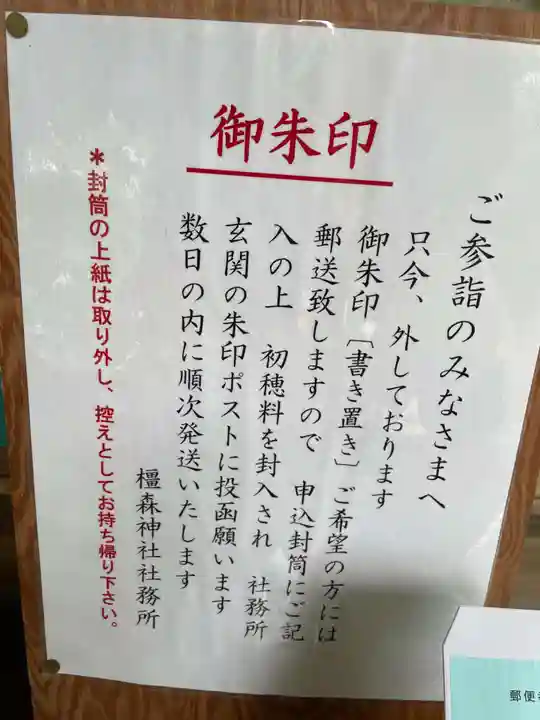 御朱印
ご参詣のみなさまへ
只今、外しております
御朱印〔書き置き〕ご希望の方には
郵送致しますので 申込封筒にご記
入の上 初穂料を封入され 社務所
玄関の朱印ポストに投函願います
数日の内に順次発送いたします
橿森神社社務所
＊封筒の上紙は取り外し、控えとしてお持ち帰り下さい。
郵便